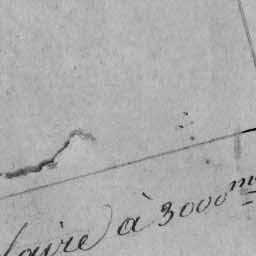 laire à 3000m